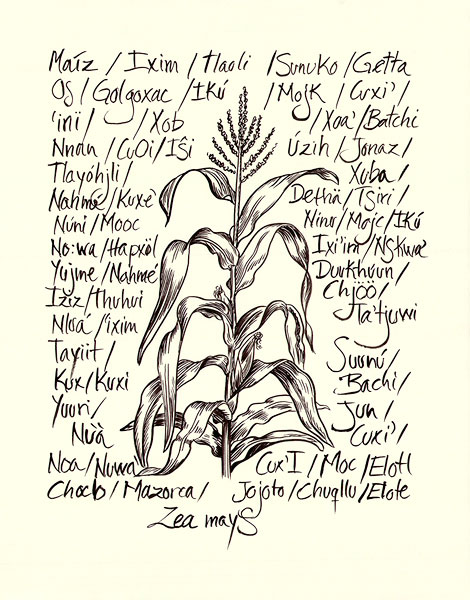 Maíz / Ixim / Tlaoli / Sunuko / Getta
Oš / Golgoxac / IKÚ / Mojk / Cuxi' /
'ini / / Xob / Xoa' / Batchi
Nnan / CuOi / Iši Úzih / Jonaz /
Tlayóhjli / Xuba /
Nahmé / Kuxé Dethä / Tsiri /
Núni / Mooc Ninu / Mojc / IKÚ
No:wa / Hapxöl Ixi'im / Nskwa
Yujme / Nahmé Duurkhuun /
Ižiz / Thuhui Chjöö /
Nloá / 'ixim Ta'tjuwi
Tayiit /
Kux / Kuxi Suunú /
Yuuri / Bachi /
Nu'ù Jun /
Cuxi' /
Noa / Nuwa Cux'I / Moc / Elotl
Choclo / Mazorca / Jojoto / Chuqllu / Elote
Zea mays